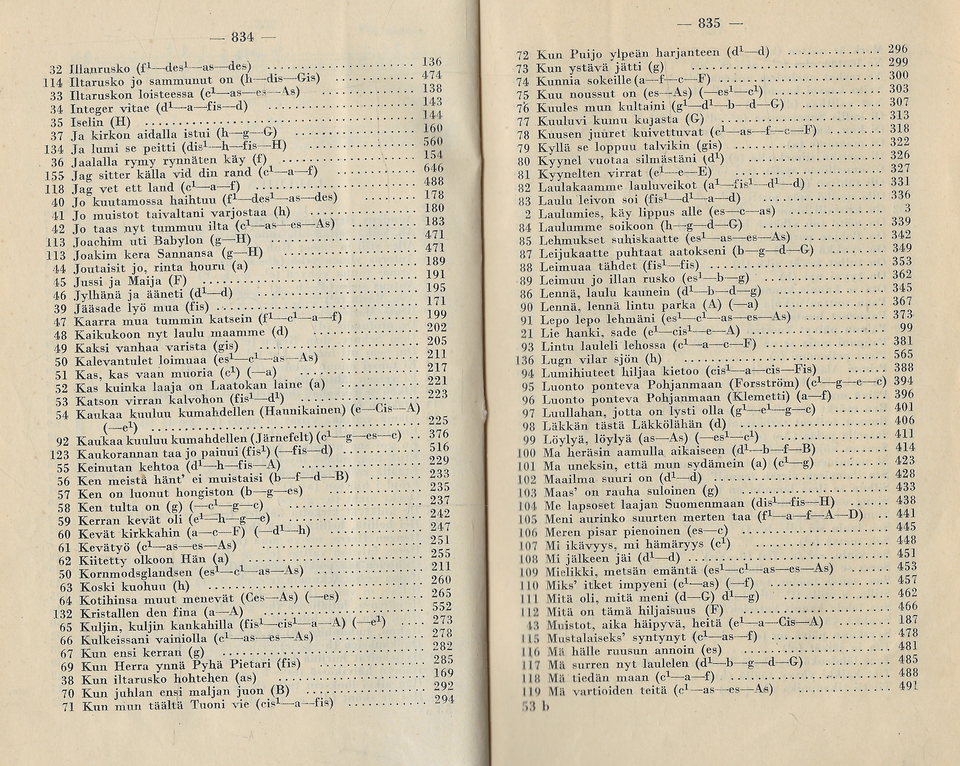 — 834 —
32 Illanrusko (f¹—des¹—as—des) 136
114 Iltarusko jo sammunut on (h—dis—Gis) 474
33 Iltaruskon loisteessa (c¹—as—es—As) 138
34 Integer vitae (d¹—a—fis—d) 143
35 Iselin (H) 144
37 Ja kirkon aidalla istui (h—g—G) 160
134 Ja lumi se peitti (dis¹—h—fis—H) 560
36 Jaalalla rymy rynnäten käy (f) 154
155 Jag sitter källa vid din rand (c¹—a—f) 646
118 Jag vet ett land (c¹—a—f) 488
40 Jo kuutamossa haihtuu (f¹—des¹—as—des) 178
41 Jo muistot taivaltani varjostaa (h) 180
42 Jo taas nyt tummuu ilta (c¹—as—es—As) 183
113 Joachim uti Babylon (g—H) 471
113 Joakim kera Sannansa (g—H) 471
44 Joutaisit jo, rinta houru (a) 189
45 Jussi ja Maija (F) 191
46 Jylhänä ja ääneti (d¹—d) 195
39 Jääsade lyö mua (fis) 171
47 Kaarra mua tummin katsein (f¹—c¹—a—f) 199
48 Kaikukoon nyt laulu maamme (d) 202
49 Kaksi vanhaa varista (gis) 205
50 Kalevantulet loimuaa (es¹—c¹—as—As) 211
51 Kas, kas vaan muoria (c¹) (—a) 217
52 Kas kuinka laaja on Laatokan laine (a) 221
53 Katson virran kalvohon (fis¹—d¹) 223
54 Kaukaa kuuluu kumahdellen (Hannikainen) (e—Cis—A)
(—e¹) 225
92 Kaukaa kuuluu kumahdellen (Järnefelt) (c¹—g—es—c) 376
123 Kaukorannan taa jo painui (fis¹) (—fis—d) 516
55 Keinutan kehtoa (d¹—h—fis—A) 229
56 Ken meistä hänt' ei muistaisi (b—f—d—B) 233
57 Ken on luonut hongiston (b—g—es) 235
58 Ken tulta on (g) (—c¹—g—c) 237
59 Kerran kevät oli (e¹—h—g—e) 242
60 Kevät kirkkahin (a—c—F) (—d¹—h) 247
61 Kevätyö (c¹—as—es—As) 251
62 Kiitetty olkoon Hän (a) 255
50 Kornmodsglandsen (es¹—c¹—as—As) 211
63 Koski kuohuu (h) 260
64 Kotihinsa muut menevät (Ces—As) (—es) 265
132 Kristallen den fina (a—A) 552
65 Kuljin, kuljin kankahilla (fis¹—cis¹—a—A) (—e¹) 273
66 Kulkeissani vainiolla (c¹—as—es—As) 278
67 Kun ensi kerran (g) 282
69 Kun Herra ynnä Pyhä Pietari (fis) 285
38 Kun iltarusko hohtehen (as) 169
70 Kun juhlan ensi maljan juon (B) 292
71 Kun mun täältä Tuoni vie (cis¹—a—fis) 294
— 835 —
72 Kun Puijo ylpeän harjanteen (d¹—d) 296
73 Kun ystävä jätti (g) 299
74 Kunnia sokeille (a—f—c—F) 300
75 Kuu noussut on (es—As) (—es¹—c¹) 303
76 Kuules mun kultaini (g¹—d¹—b—d—G) 307
77 Kuuluvi kumu kujasta (G) 313
78 Kuusen juuret kuivettuvat (c¹—as—f—c—F) 318
79 Kyllä se loppuu talvikin (gis) 322
80 Kyynel vuotaa silmästäni (d¹) 326
81 Kyynelten virrat (e¹—e—E) 327
82 Laulakaamme lauluveikot (a¹—fis¹—d¹—d) 331
83 Laulu leivon soi (fis¹—d¹—a—d) 336
2 Laulumies, käy lippus alle (es—c—as) 3
84 Laulumme soikoon (h—g—d—G) 339
85 Lehmukset suhiskaatte (es¹—as—es—As) 342
87 Leijukaatte puhtaat aatokseni (b—g—d—G) 349
88 Leimuaa tähdet (fis¹—fis) 353
89 Leimuu jo illan rusko (es¹—b—g) 362
86 Lennä, laulu kaunein (d¹—b—d—g) 345
90 Lennä, lennä lintu parka (A) (—a) 367
91 Lepo lepo lehmäni (es¹—c¹—as—es—As) 373
21 Lie hanki, sade (e¹—cis¹—e—A) 99
93 Lintu lauleli lehossa (c¹—a—c—F) 381
136 Lugn vilar sjön (h) 565
94 Lumihiuteet hiljaa kietoo (cis¹—a—cis—Fis) 388
95 Luonto ponteva Pohjanmaan (Forsström) (c¹—g—e—c) 394
96 Luonto ponteva Pohjanmaan (Klemetti) (a—f) 396
97 Luullahan, jotta on lysti olla (g¹—e¹—g—c) 401
98 Läkkän tästä Läkkölähän (d) 406
99 Löylyä, löylyä (as—As) (—es¹—c¹) 411
100 Ma heräsin aamulla aikaiseen (d¹—b—f—B) 414
101 Ma uneksin, että mun sydämein (a) (c¹—g) 423
102 Maailma suuri on (d¹—d) 428
103 Maas' on rauha suloinen (g) 433
104 Me lapsoset laajan Suomenmaan (dis¹—fis—H) 438
105 Meni aurinko suurten merten taa (f¹—a—f—A—D) 441
106 Meren pisar pienoinen (es—c) 445
107 Mi ikävyys, mi hämäryys (c¹) 448
108 Mi jälkeen jäi (d¹—d) 451
109 Mielikki, metsän emäntä (es¹—c¹—as—es—As) 453
110 Miks' itket impyeni (c¹—as) (—f) 457
111 Mitä oli, mitä meni (d—G) d¹—g) 462
112 Mitä on tämä hiljaisuus (F) 466
43 Muistot, aika häipyvä, heitä (e¹—a—Cis—A) 187
115 Mustalaiseks' syntynyt (c¹—as—f) 478
116 Mä hälle ruusun annoin (es) 481
117 Mä surren nyt laulelen (d¹—b—g—d—G) 485
118 Mä tiedän maan (c¹—a—f) 488
119 Mä vartioiden teitä (c¹—as—es—As) 491
53 b